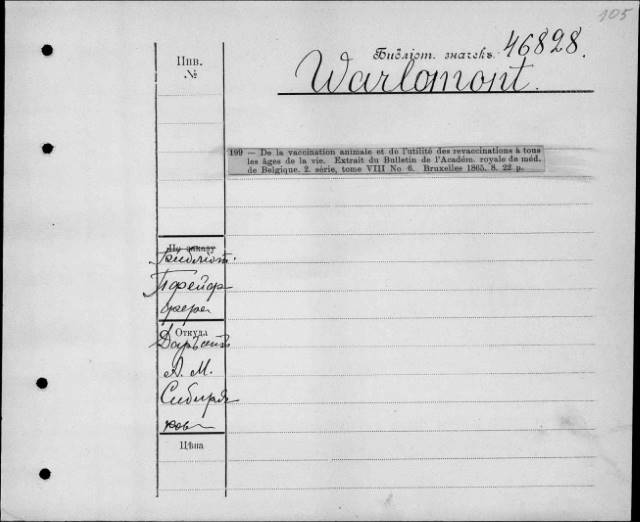 105
Инв.
№
Библіот. значекъ 46828.
Warlomont.
199 — De la vaccination animale et de l'utilité des revaccinations à tous
les âges de la vie. Extrait du Bulletin de l'Académ. royale de méd.
de Belgique. 2. série, tome VIII No 6. Bruxelles 1865. 8. 22 p.
По заказу
Библіот.
Пфейф
фера
Откуда
Даръ отъ
А. М.
Сибиря
кова
Цѣна